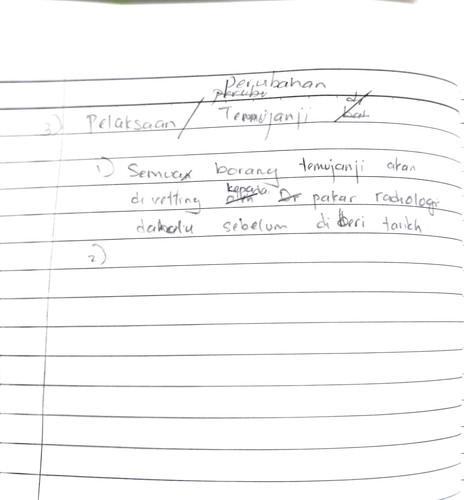 perubahan
3) Pelaksaan / Temujanji
1) Semua borang temujanji akan
di vetting kepada pakar radiologi
dahulu sebelum di beri tarikh
2)